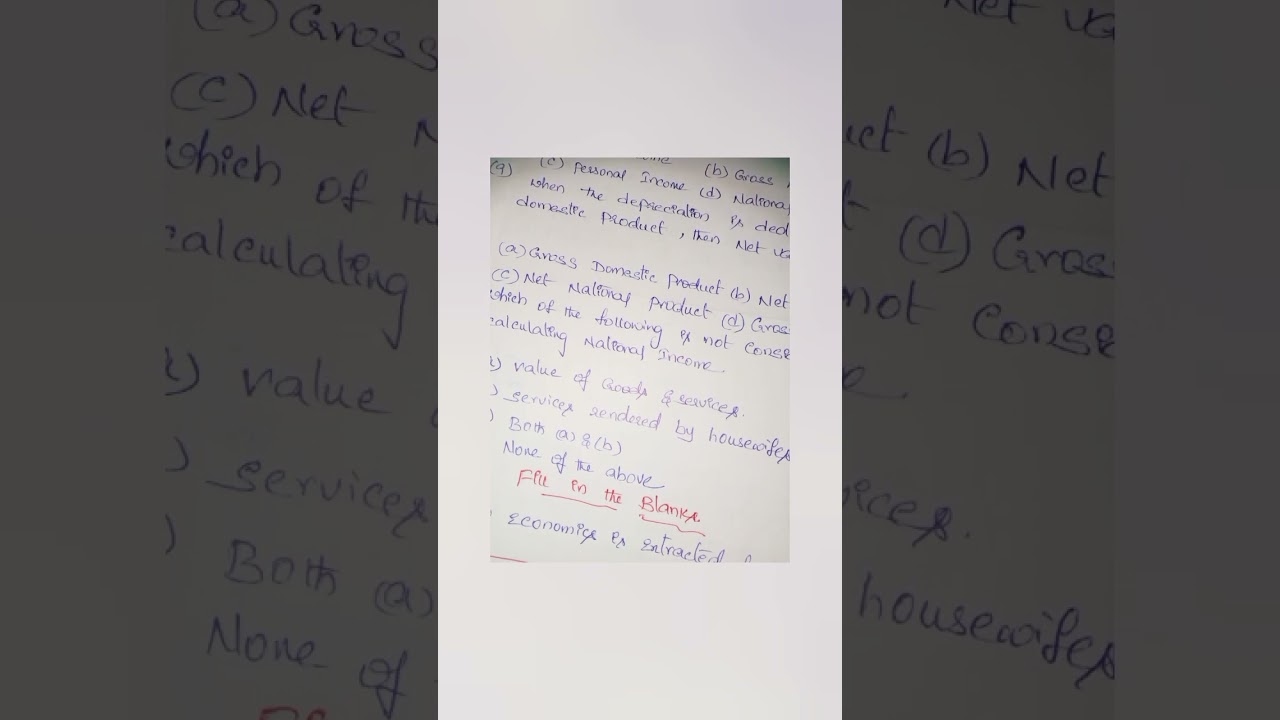 (9) (c) Personal Income (b) Gross
(d) National
when the depreciation is ded
domestic product, then Net va
(a) Gross Domestic Product (b) Net
(c) Net National product (d) Gros
which of the following is not conse
calculating National Income.
value of Goods & services.
) services rendered by housewifes
) Both (a) & (b)
None of the above
Fill in the Blanks.
Economics is extracted